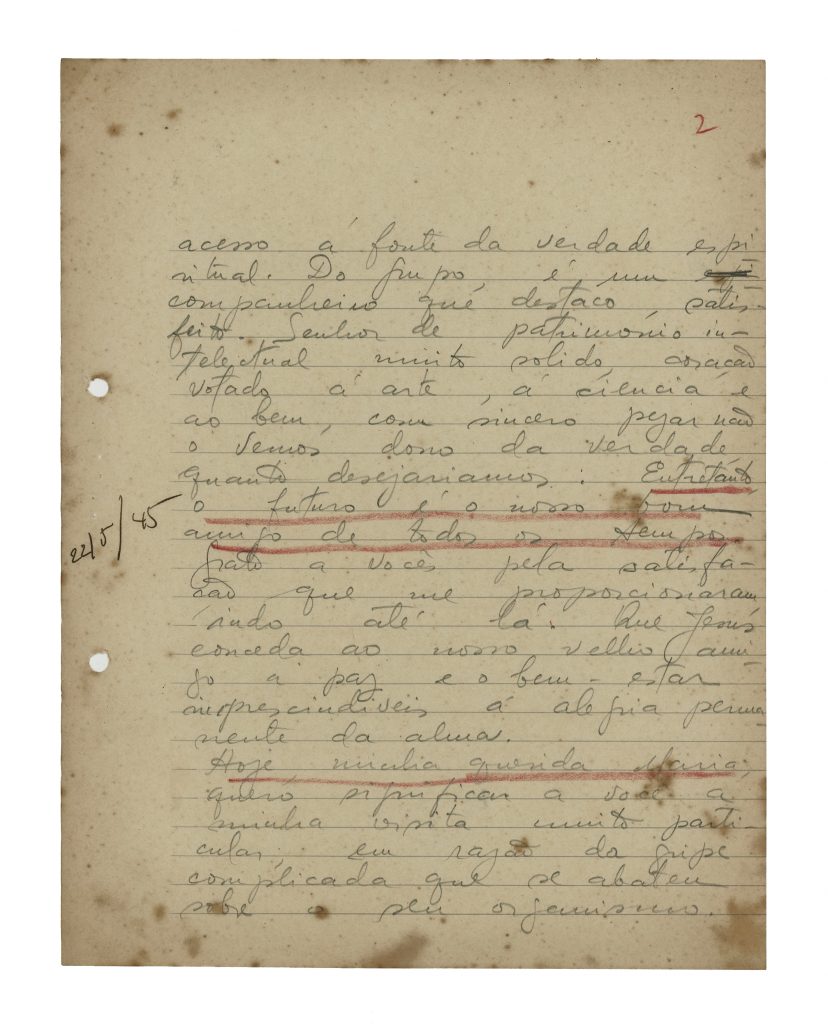 2
acesso á fonte da verdade espi
ritual. Do grupo, é um
companheiro que destaco, satis-
feito. Senhor de patrimonio in-
telectual muito solido, coração
votado á arte, á ciencia e
ao bem, com sincero pezar não
o vemos dono da verdade
quanto desejariamos. Entretanto
o futuro é o nosso bom
amigo de todos os tempos.
22/5/45
Grato a vocês pela satisfa-
ção que me proporcionaram
indo até lá. Que Jesus
conceda ao nosso velho ami-
go a paz e o bem-estar
imprescindiveis á alegria perma-
nente da alma.
Hoje, minha querida Maria,
quero significar a você a
minha visita muito parti-
cular, em razão da gripe
complicada que se abateu
sobre o seu organismo.